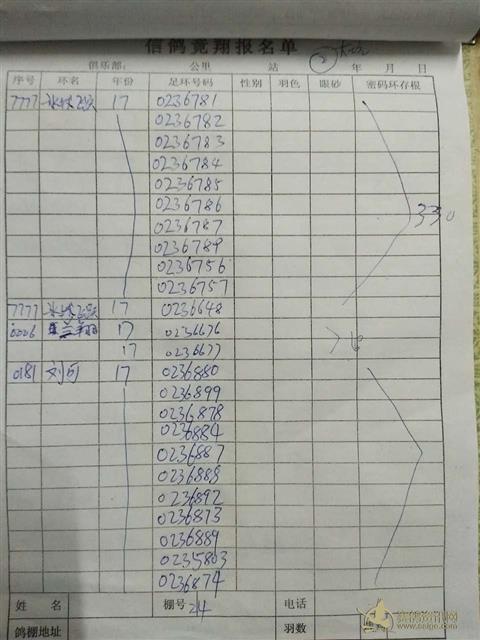 信鸽竞翔报名单
俱乐部: 公里 站 年 月 日
序号 环名 年份 足环号码 性别 羽色 眼砂 密码环存根
7777 17 0236781
0236782
0236783
0236784
0236785
0236786
0236787 330
0236789
0236756
0236757
7777 17 0236648
0006 17 0236676
17 0236677
0181 刘可 17 0236880
0236899
0236878
0236884
0236887
0236888
0236892
0236873
0236889
0235803
0236874
姓名 棚号 24 电话
鸽棚地址 羽数
www.saige.com